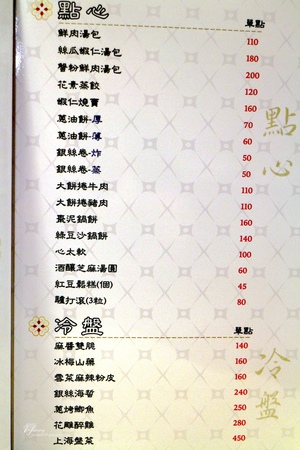 點心 單點
鮮肉湯包 110
絲瓜蝦仁湯包 180
蟹粉鮮肉湯包 200
花素蒸餃 120
蝦仁燒賣 160
蔥油餅-厚 70
蔥油餅-薄 60
銀絲卷-炸 50
銀絲卷-蒸 50
大餅捲牛肉 110
大餅捲豬肉 110
棗泥鍋餅 160
綠豆沙鍋餅 140
心太軟 100
酒釀芝麻湯圓 60
紅豆鬆糕(個) 45
驢打滾(3粒) 80
點心
冷盤 單點
麻醬雙脆 140
冰梅山藥 160
雪菜麻辣粉皮 160
銀絲海蜇 240
蔥烤鯽魚 250
花雕醉雞 280
上海盤菜 450
冷盤